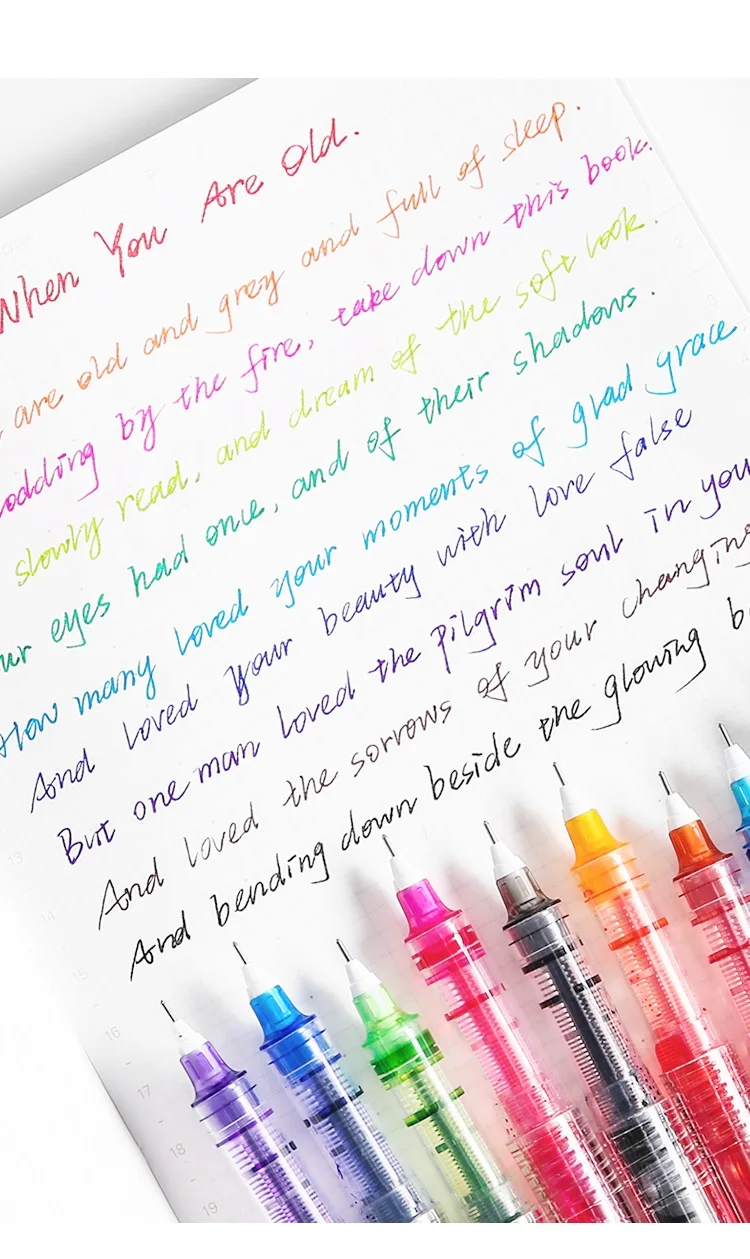 When You Are Old.
are old and grey and full of sleep.
nodding by the fire, take down this book.
slowly read, and dream of the soft look.
ur eyes had once, and of their shadows.
How many loved your moments of glad grace
And loved your beauty with love false
But one man loved the pilgrim soul in you
And loved the sorrows of your changing
And bending down beside the glowing b
16
17
18
19